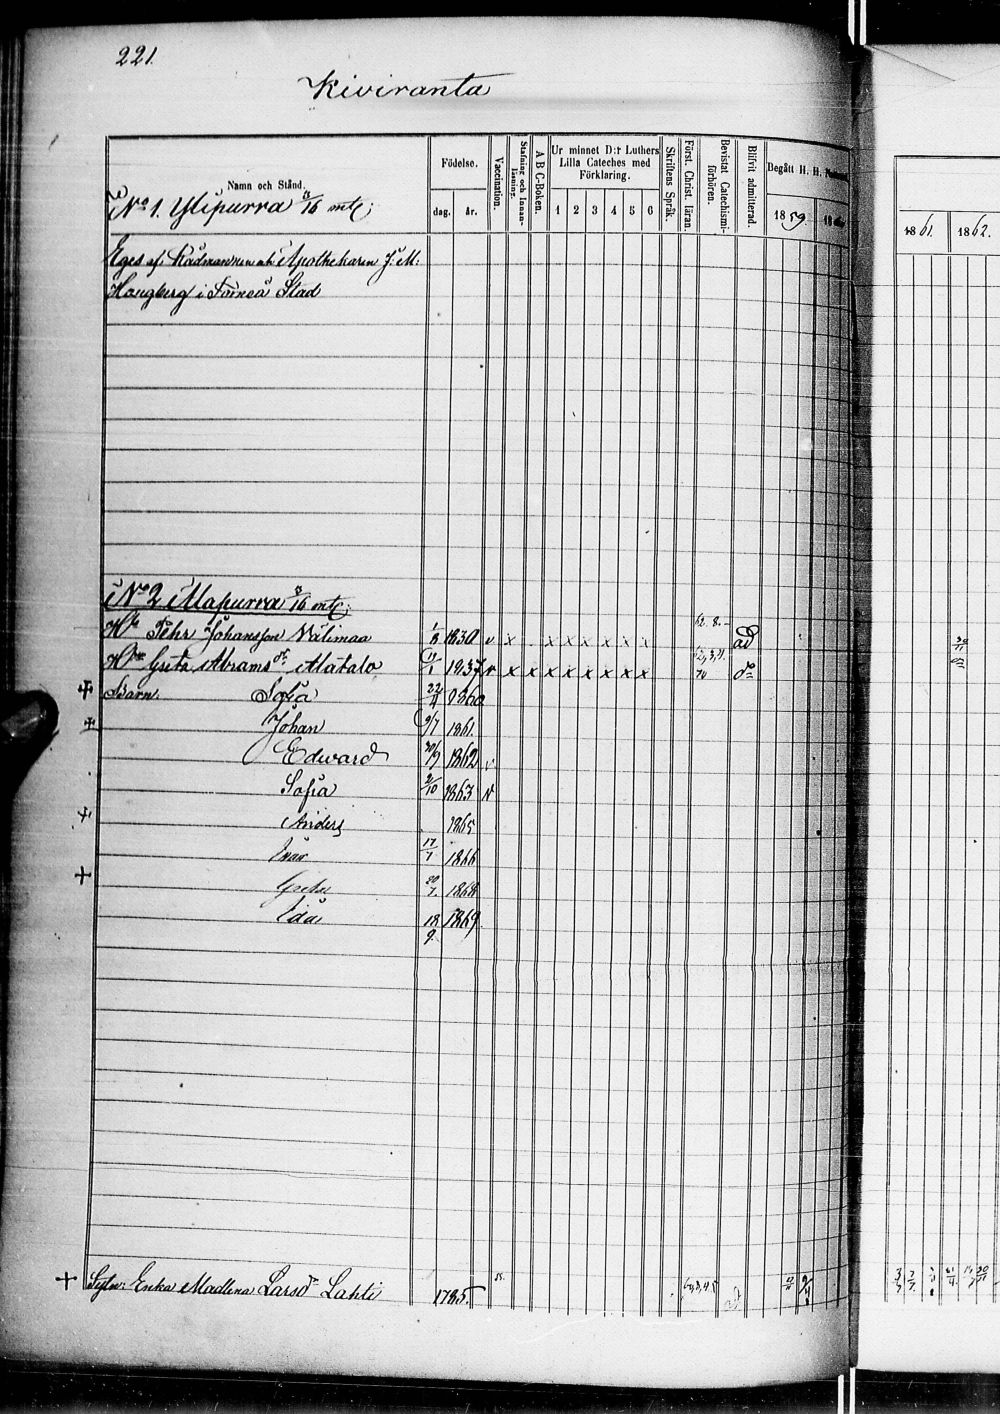 221.
Kiviranta
Namn och Stånd.
Födelse.
dag. år.
Vaccination.
Stafning och Innan-läsning.
A B C-Boken.
Ur minnet D:r Luthers Lilla Cateches med Förklaring.
1 2 3 4 5 6
Skriftens Språk.
Först. Christ. läran.
Bevistat Catechismi-förhören.
Blifvit admitterad.
Begått H. H.
1859.
1861. 1862.
No 1. Ylipurra 13/16 mtl:
Eges af Rådmannen och Apothekaren J: M:
Haugberg i Torneå Stad
No 2 Alapurra 3/16 mtl:
Hde Pehr Johansson Välimaa 1/8 1830 v x x x x x x x 62. 8. ad
Hu Greta Abrams dr Alatalo 1837 v x x x x x x x x 70 do
Barn. Sofia 22/4 1860
Johan 9/7 1861.
Edward 30/9 1862 v
Sofia 2/10 1863 v
Anders 1865
Ivar 17/1 1866
Greta 20/7. 1868
Ida 18/9. 1869.
Sytn: Enka Madlena Larsdr Lahti 1785.